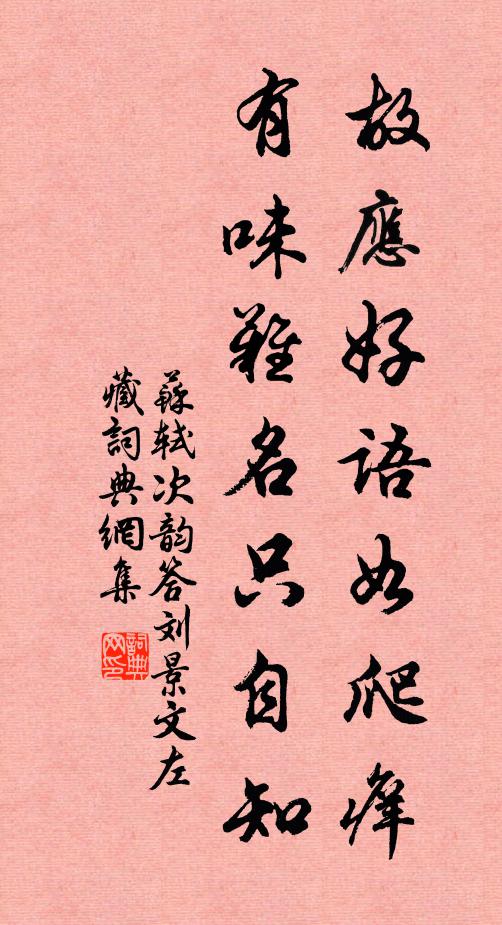 故應好語如爬癢
有味難名只自知
蘇軾次韵答刘景文左
藏詞典網集
詞典网印